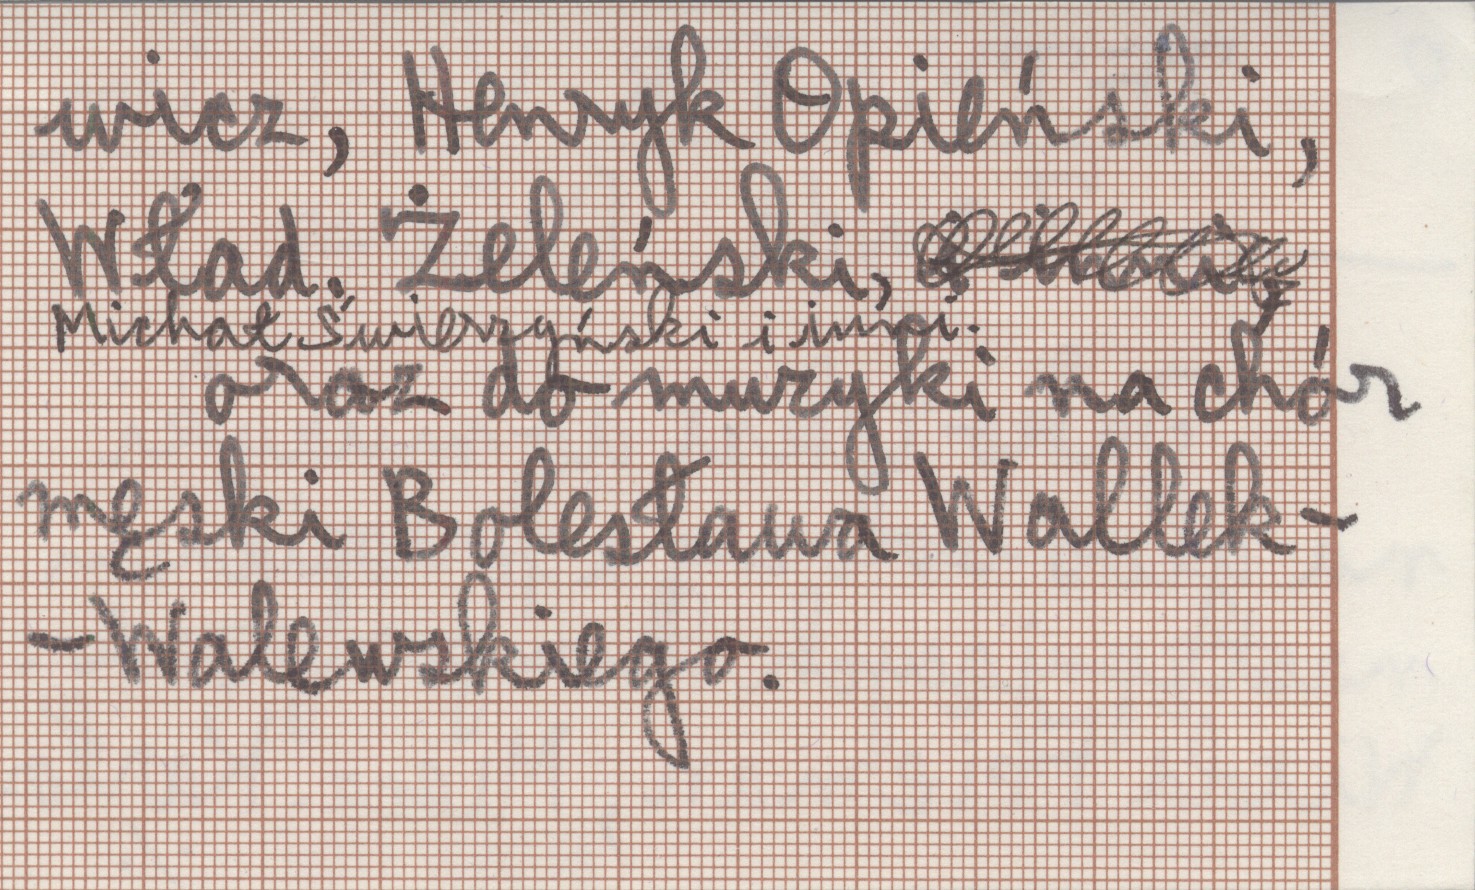 wicz, Henryk Opieński,
Wład. Żeleński,
Michał Świerzyński i inni.
oraz do muzyki na chór
męski Bolesława Wallek-
-Walewskiego.